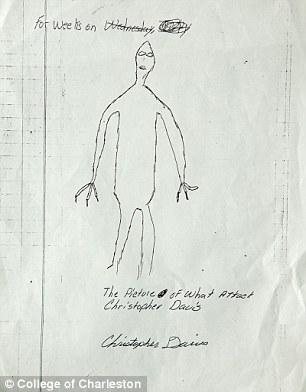 For Weeks on Wednesday,
The Picture of What Attact
Christopher Davis
Christopher Davis
© College of Charleston